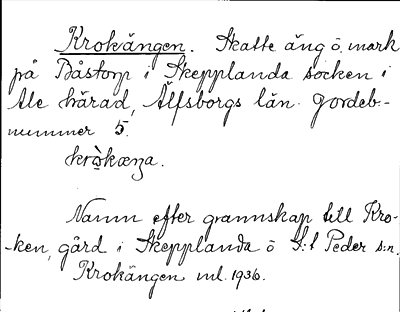 Krokängen. Skatte äng ö. mark
på Båstorp i Skepplanda socken i
Ale härad, Älfsborgs län. Jordeb.-
nummer 5.
krò̀kæŋa.
Namn efter grannskap till Kro-
-ken, gård i Skepplanda o S:t Peder s:n.
Krokängen url. 1936.